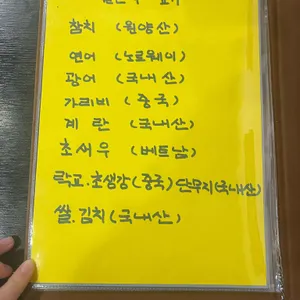 참치 (원양산)
연어 (노르웨이)
광어 (국내산)
가리비 (중국)
계란 (국내산)
초새우 (베트남)
락교.초생강(중국) 단무지(국내산)
쌀.김치(국내산)